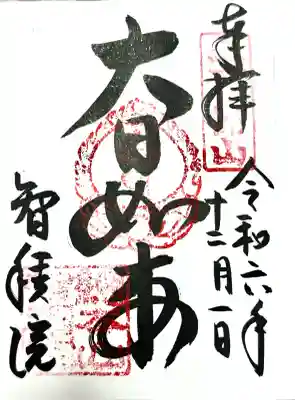 奉拝
令和六年
十二月一日
大日如来
智積院